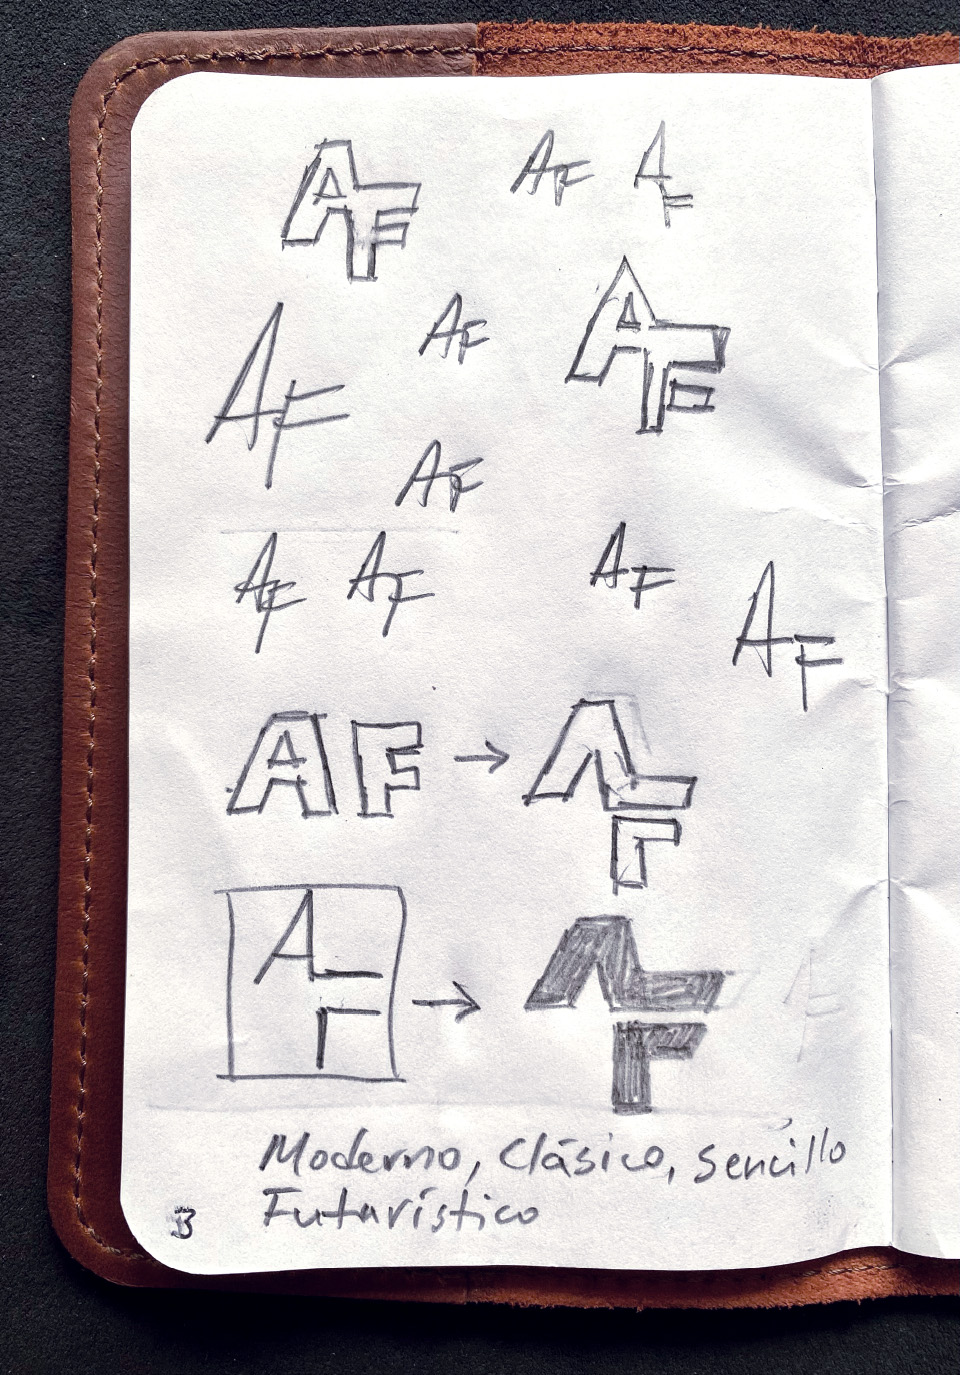 AF
AF
AF
AF
AF
AF
AF
AF
AF
AF
AF
AF
AF → AF
AF → AF
Moderno, Clásico, Sencillo
Futurístico